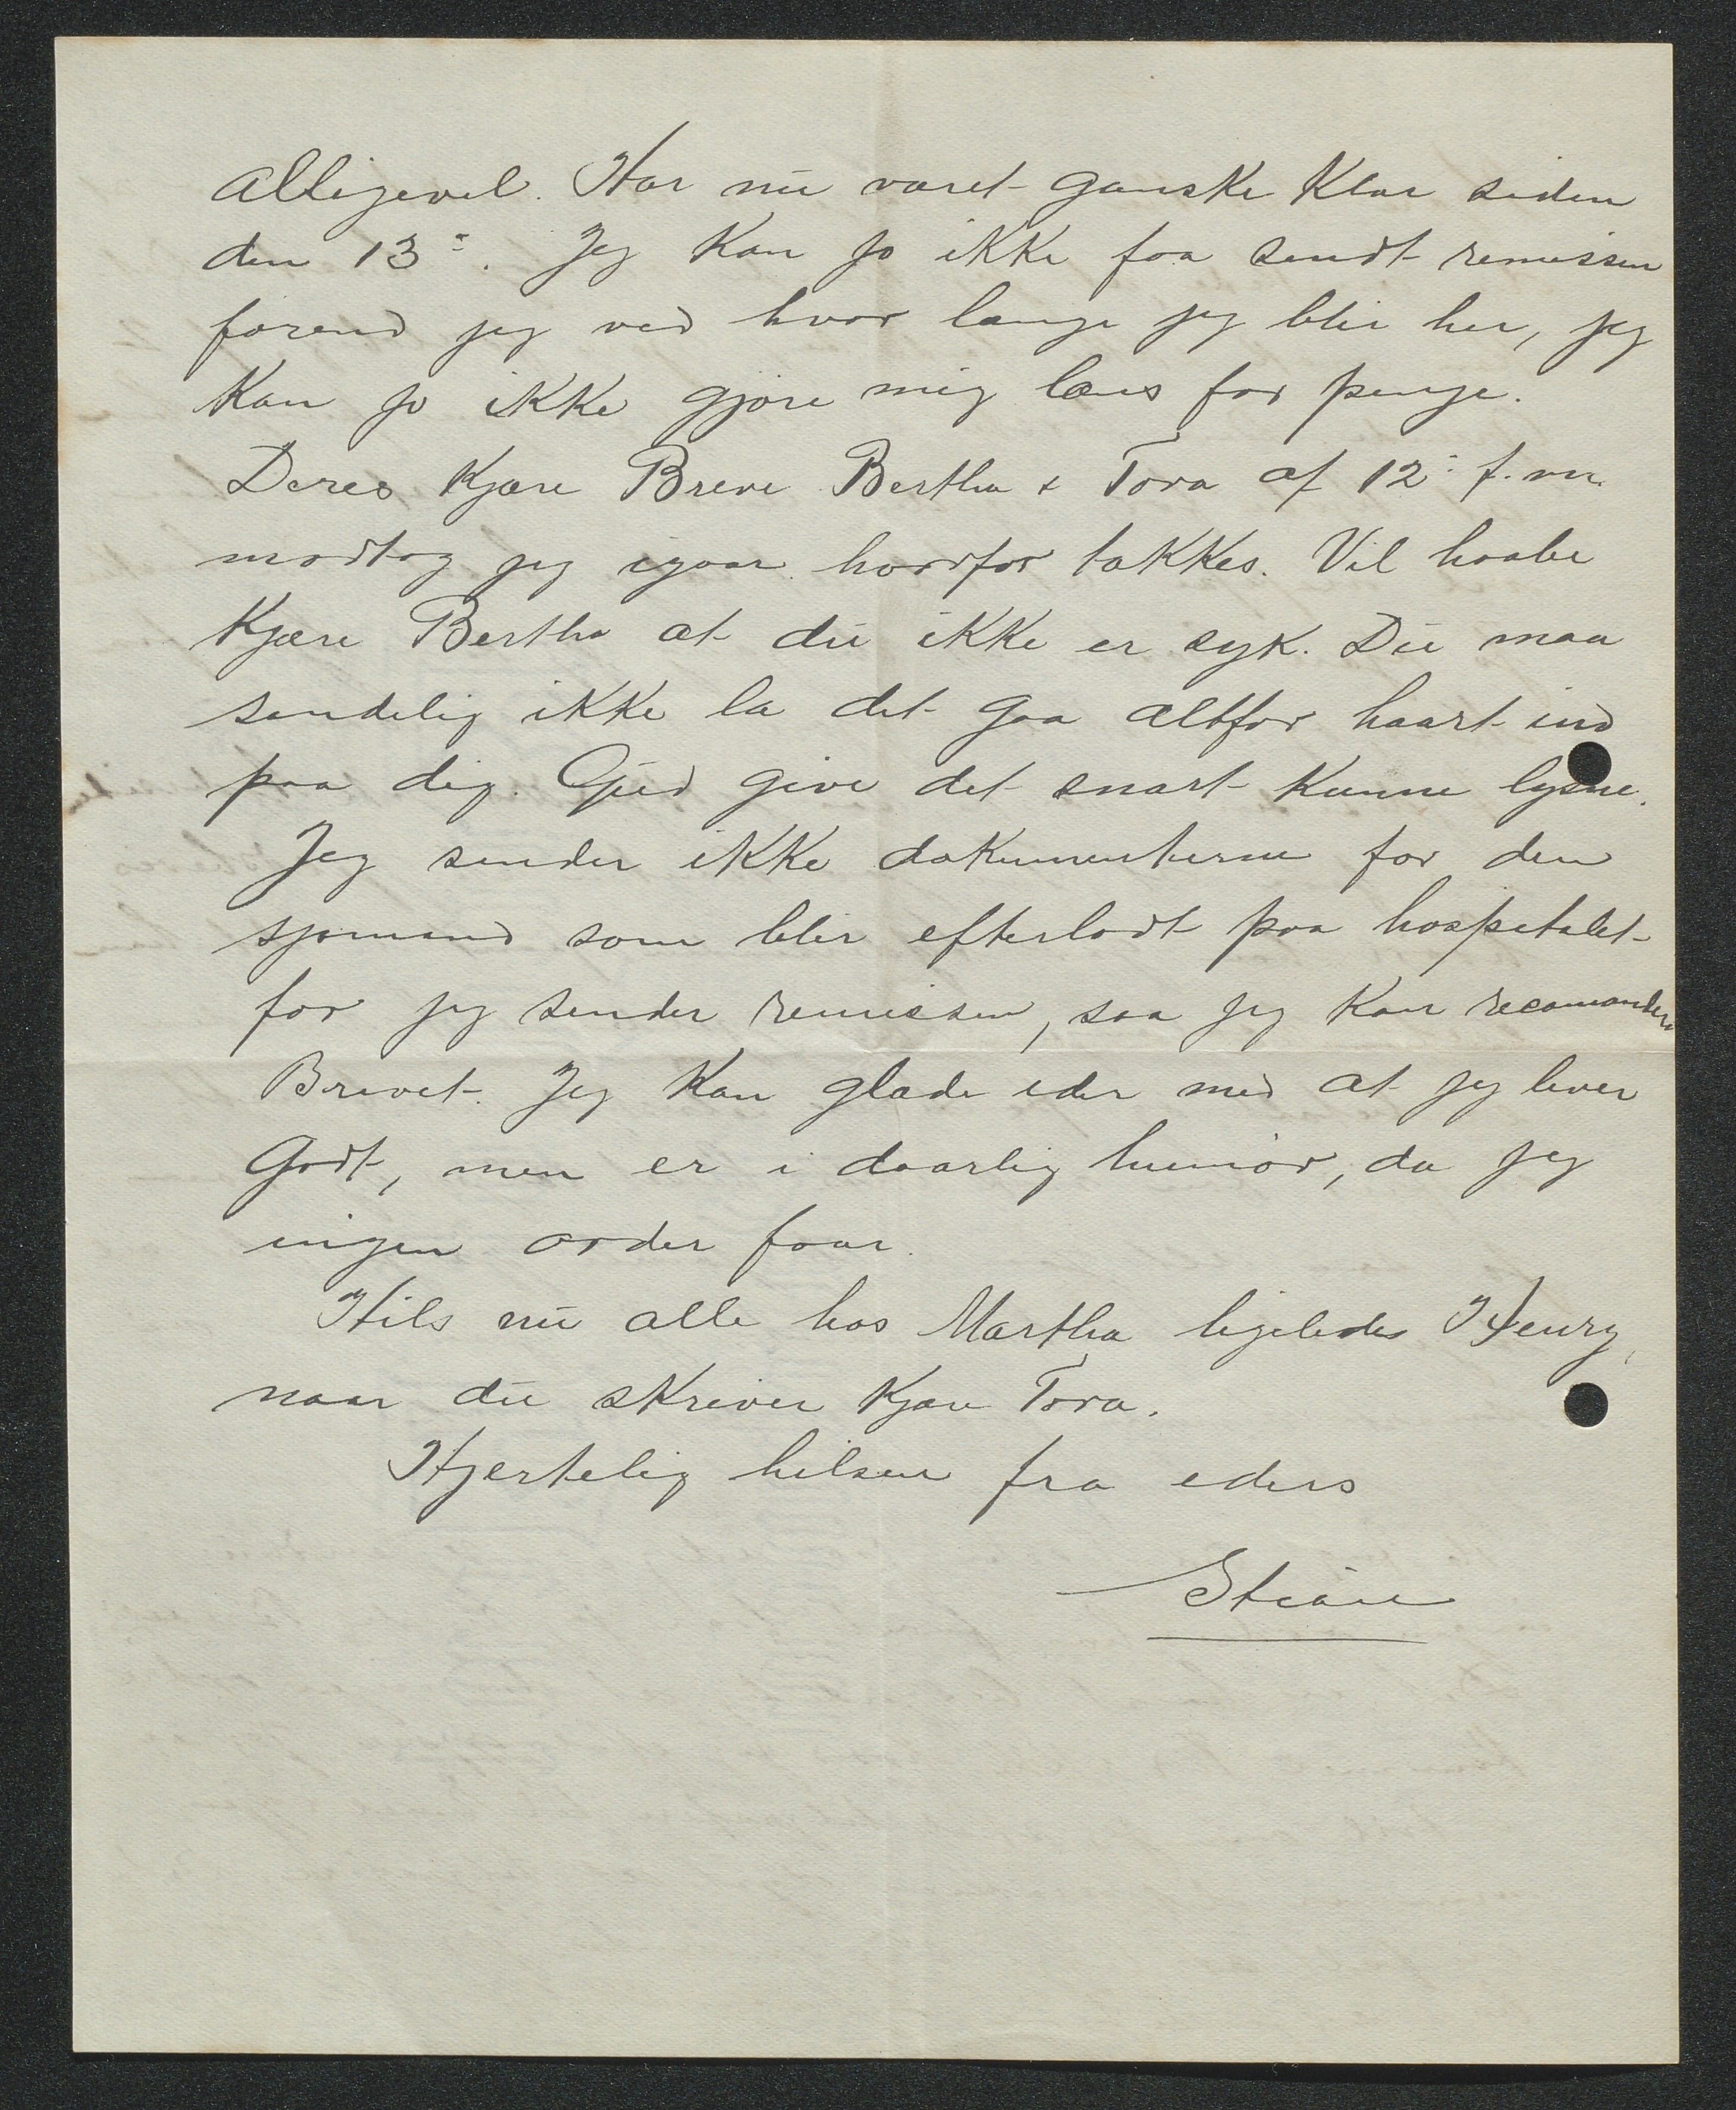 alligevel. Har nu været ganske klar siden
den 13de. Jeg kan jo ikke faa sendt remissen
førend jeg ved hvor længe jeg blir her, jeg
kan jo ikke gjøre mig læns for penge.
Deres kjære Breve Bertha & Tora af 12' f.m.
modtog jeg igaar hvorfor takkes. Vil haabe
kjære Bertha at du ikke er syk. Du maa
sandelig ikke la det gaa altfor haart ind
paa dig. Gud give det snart kunne lysne.
Jeg sender ikke dokumenterne for den
sjømand som blir efterladt paa hospitalet
før jeg sender remissen, saa jeg kan recomandere
Brevet. Jeg kan glæde eder med at jeg lever
Godt, men er i daarlig humør, da jeg
ingen order faar.
Hils nu alle hos Martha ligeledes Henry,
naar du skriver kjære Tora.
Hjertelig hilsen fra eders